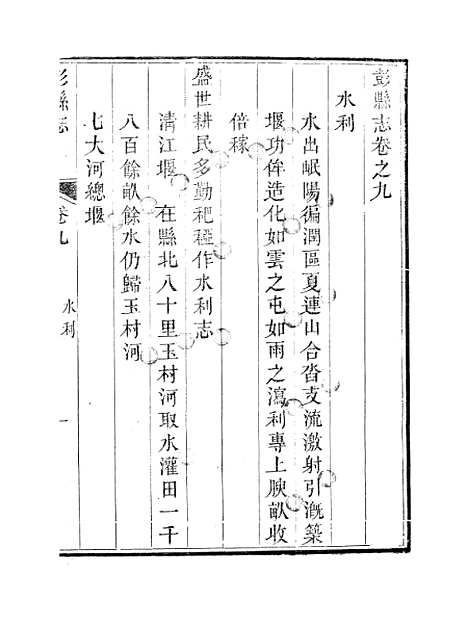 彭縣志卷之九
水利
水出岷陽徧潤區夏連山合沓支流激射引漑築
堰功侔造化如雲之屯如雨之瀉利專上腴畝收
倍稼
盛世耕民多勤䄫稏作水利志
清江堰 在縣北八十里玉村河取水灌田一千
八百餘畝餘水仍歸玉村河
七大河總堰
彭縣志 卷九 水利 一